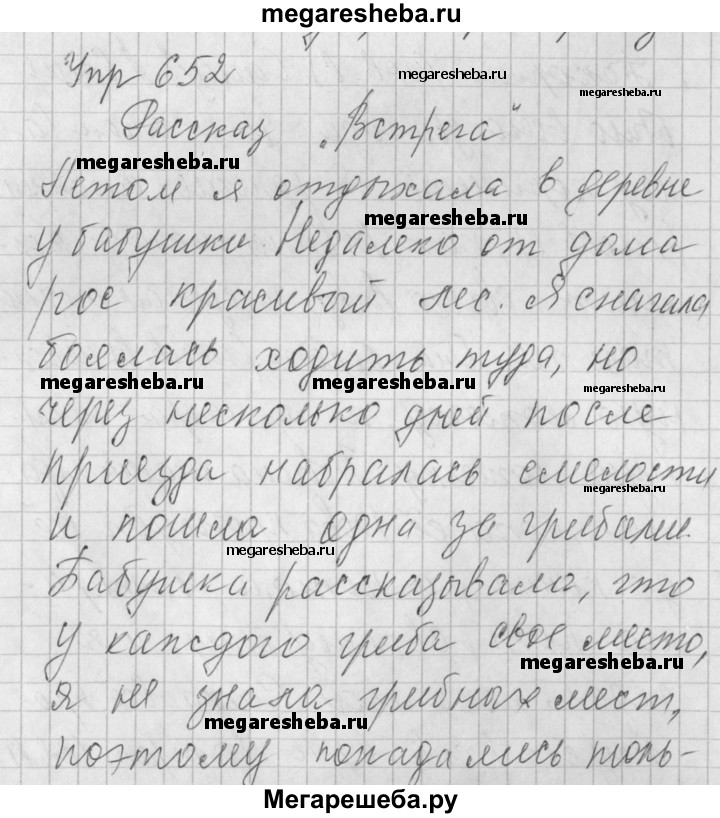 megaresheba.ru
Упр 652
megaresheba.ru
megaresheba.ru
Рассказ „Встреча“
megaresheba.ru
Летом я отдыхала в деревне
megaresheba.ru
у бабушки. Недалеко от дома
рос красивый лес. Я сначала
боялась ходить туда, но
megaresheba.ru megaresheba.ru megaresheba.ru
через несколько дней после
приезда набралась смелости
megaresheba.ru
и пошла одна за грибами.
megaresheba.ru
Бабушка рассказывала, что
у каждого гриба свое место,
megaresheba.ru
я не знала грибных мест,
megaresheba.ru
поэтому попадались толь-
Мегарешеба.ру